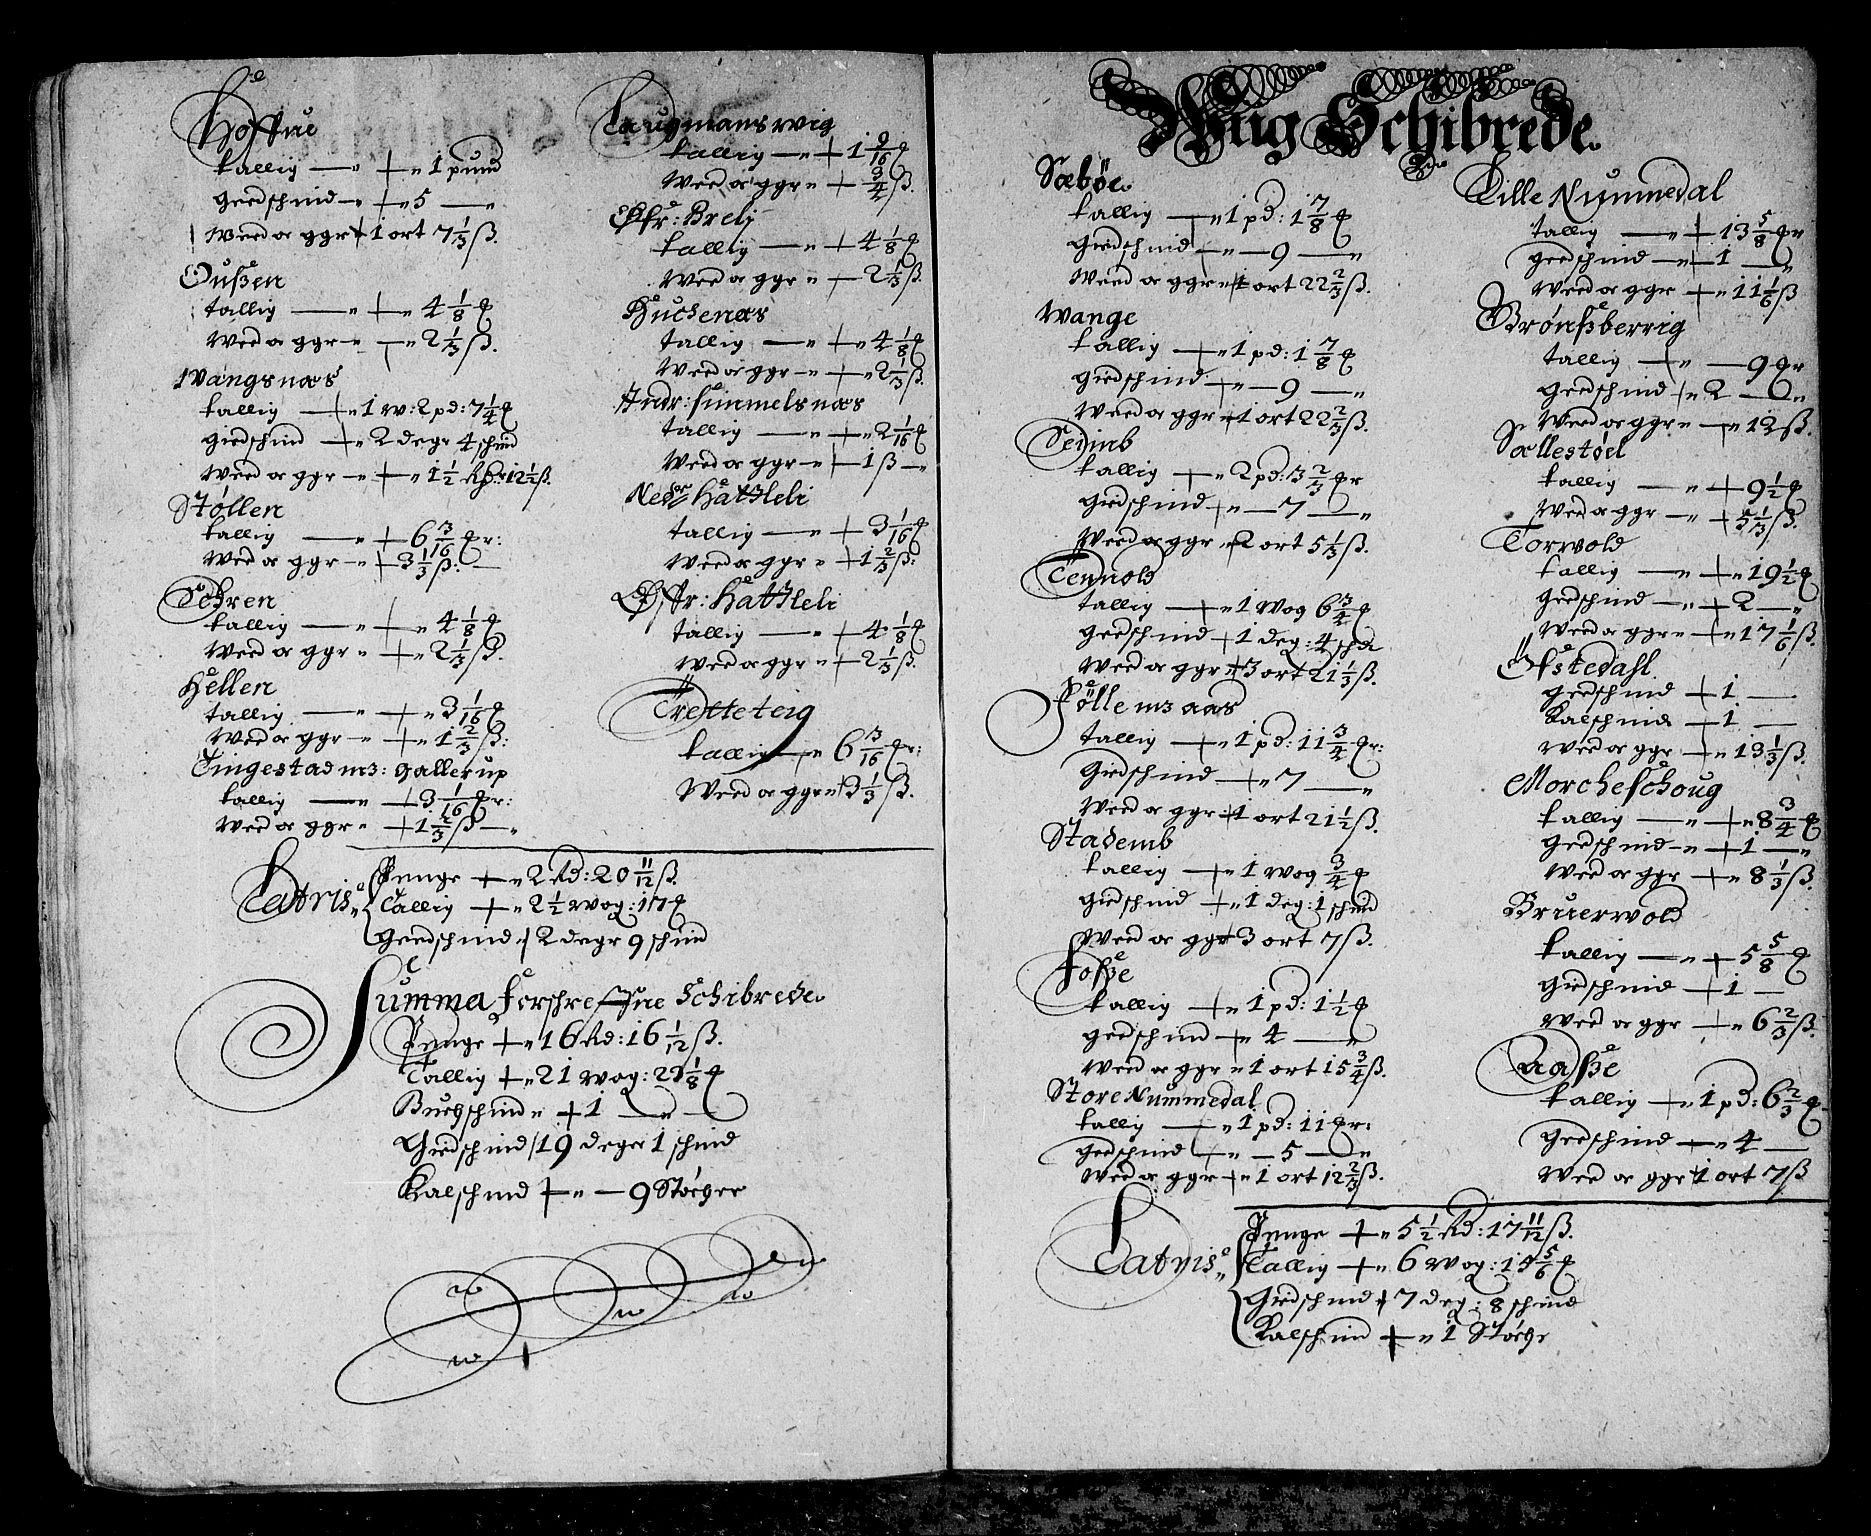 Hoffue
tallig — " + " 1 pund
geedschind — " + " 5 —
Weed oc ggr + 1 ort 7 1/3 ß.
Oußen
tallig — " + " 4 1/8 ℔
Weed oc ggr — " + " 2 1/3 ß.
Wangsnæs
tallig + " 1 w: 2 pd: 7 1/4 ℔
giedschind + " 2 degr 4 schind
Weed oc ggr — " + " 1 1/2 Rd: 12 1/2 ß.
Støllen
tallig — " + 6 3/16 ℔r:
Wed oc ggr — " + 3 1/3 ß: —
Tehren
tallig — " + " 4 1/8 ℔
Weed oc ggr " + " 2 1/3 ß.
Hellen
tallig — " + " 3 1/16 ℔
Weed oc ggr — " + " 1 2/3 ß:
Tingestad m3: gallerup
tallig — " + 3 1/16 ℔r:
Wed oc ggr " + 1 2/3 ß — "
Laugmanswig
tallig — " + 1 9/16 ℔
Weed oc ggr " + 3/4 ß.
Øffr: Brelj
tallig — " + 4 1/8 ℔
Weed oc ggr " + 2 1/3 ß.
Huchenæs
tallig — " + " 4 1/8 ℔
Weed oc ggr — " + " 2 1/3 ß.
Indr: simmelsnæs
tallig — " + " 2 1/16 ℔
Weed oc ggr — " + 1 ß — "
Neder hattleli
tallig — " + 3 1/16 ℔
Weed oc ggr " + 1 2/3 ß:
Øffr: hattleli
tallig — " + 4 1/8 ℔
Weed oc ggr " + 2 1/3 ß.
Tretteteig
tallig + " 6 3/16 ℔r:
Weed oc ggr " + 3 1/3 ß.
Latris "
Penge + " 2 Rd: 20 11/12 ß.
Tallig + " 2 1/2 wog: 17 ℔
geedschind " + 2 degr 9 schind
Summa forschreffne Schibrede.
Penge + " 16 Rd: 16 1/12 ß.
Tallig + " 21 wog: 23 1/8 ℔
Buchschind " + 1 — " —
Giedschind / 19 deger 1 schind
Kalschind + " — 9 Støcher
Wiig Schibrede.
Sæbøe
tallig + " 1 pd: 1 7/8 ℔
giedschind — " + " — 9 — "
Weed oc ggr " + 1 ort 22 2/3 ß.
Wange
tallig + " 1 pd: 1 7/8 ℔
giedschind + " — 9 — "
Weed oc ggr + 1 ort 22 2/3 ß.
Sejmb
tallig + " 2 pd: 3 2/3 ℔r
giedschind + " — 7 — "
Weed oc ggr + 2 ort 5 1/3 ß.
Tennold
tallig + " 1 wog 6 3/4 ℔
geedschind + 1 deg: 4 schd
Weed oc ggr + 3 ort 21 1/3 ß.
Føllem3aas
tallig + " 1 pd: 11 3/4 ℔r:
Giedschind + " 7 — "
Weed oc ggr + 1 ort 21 1/2 ß.
Stademb
tallig + " 1 wog 3/4 ℔
giedschind + " 1 deg: 1 schind
Weed oc ggr + 3 ort 7 ß.
Foße
tallig + " 1 pd: 1 1/2 ℔
gedschind + " 4 — "
Weed oc ggr " 1 ort 15 3/4 ß.
Store Nummedal
tallig — " 1 pd: 11 ℔r:
geedschind + " — 5 — "
Wed oc ggr + " 1 ort 12 2/3 ß.
Lille Nummedal
tallig — " + 13 5/8 ℔r
geedschind — " + 1 — "
Weed oc ggr + " 11 1/6 ß
Brønßberrig
tallig + " — 9 ℔r
geedschind + " 2 — "
Weed oc ggr " + " 12 ß.
Sællestøel
tallig — " + 9 1/2 ℔
Weed oc ggr — " + 5 1/3 ß.
Torwold
tallig — " + " 19 1/2 ℔
geedschind — " + 2 — "
Weed oc ggr " + " 17 1/6 ß.
Ofstedahl
geedschind + 1 —
Kalschind + 1 —
Weed oc ggr + " 13 1/3 ß.
Morcheschoug
tallig — " + " 8 3/4 ℔
geedschind — " + 1 — "
Wed oc ggr + " 8 1/3 ß.
Bruerwold
tallig — " + 5 5/8 ℔
giedschind + 1 —
Wed oc ggr + " 6 2/3 ß.
Aaße
tallig + " 1 pd: 6 2/3 ℔
geedschind + " 4 —
Wed oc ggr + 1 ort 7 ß
Latris "
Penge + " 5 1/2 Rd: 17 11/12 ß.
Tallig + " 6 wog: 14 5/6 ℔
Giedschind + 7 deg: 8 schind
Kalschind + " 1 Støche